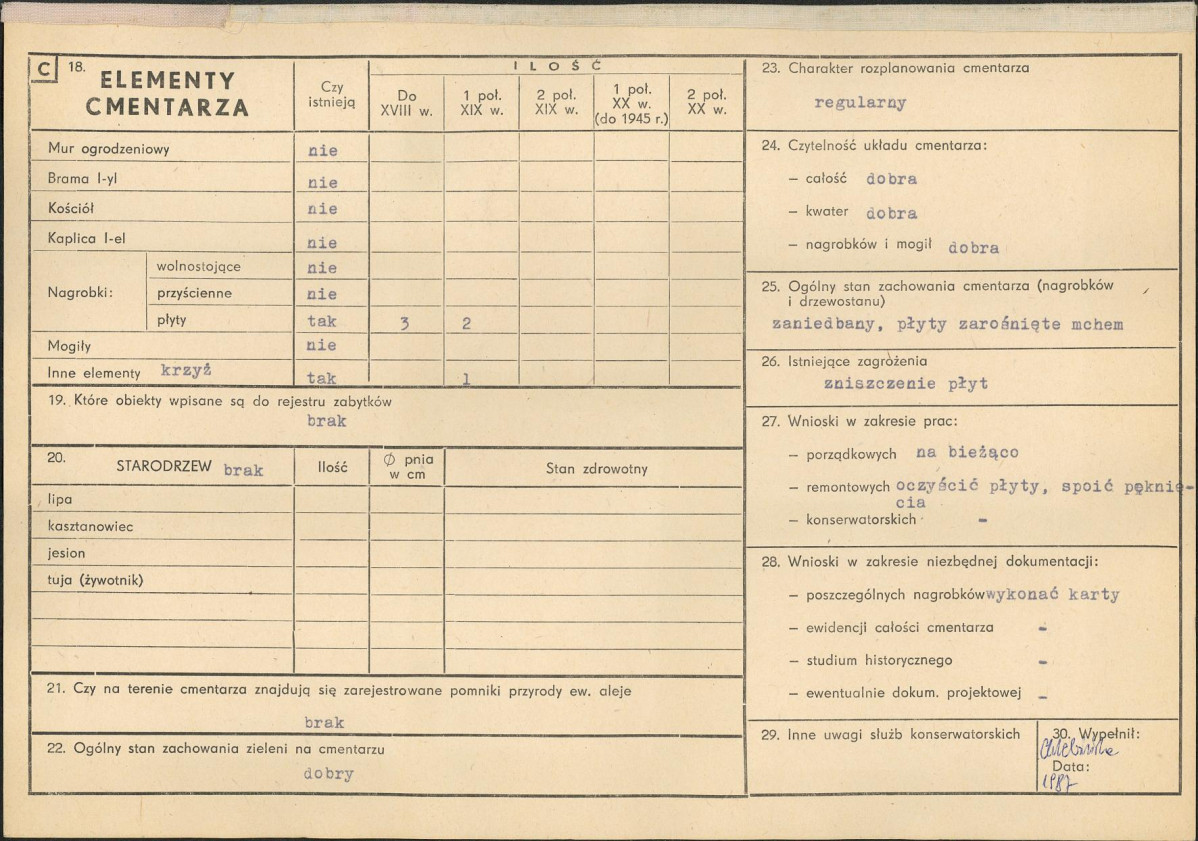 C 18. ELEMENTY CMENTARZA
Czy istnieją
ILOŚĆ
Do XVIII w.
1 poł. XIX w.
2 poł. XIX w.
1 poł. XX w. (do 1945 r.)
2 poł. XX w.
Mur ogrodzeniowy nie
Brama I-yl nie
Kościół nie
Kaplica I-el nie
Nagrobki:
wolnostojące nie
przyścienne nie
płyty tak 3 2
Mogiły nie
Inne elementy krzyż tak 1
19. Które obiekty wpisane są do rejestru zabytków
brak
20. STARODRZEW brak Ilość Ø pnia w cm Stan zdrowotny
lipa
kasztanowiec
jesion
tuja (żywotnik)
21. Czy na terenie cmentarza znajdują się zarejestrowane pomniki przyrody ew. aleje
brak
22. Ogólny stan zachowania zieleni na cmentarzu
dobry
23. Charakter rozplanowania cmentarza
regularny
24. Czytelność układu cmentarza:
— całość dobra
— kwater dobra
— nagrobków i mogił dobra
25. Ogólny stan zachowania cmentarza (nagrobków
i drzewostanu)
zaniedbany, płyty zarośnięte mchem
26. Istniejące zagrożenia
zniszczenie płyt
27. Wnioski w zakresie prac:
— porządkowych na bieżąco
— remontowych oczyścić płyty, spoić pęknię-
cia
— konserwatorskich -
28. Wnioski w zakresie niezbędnej dokumentacji:
— poszczególnych nagrobków wykonać karty
— ewidencji całości cmentarza -
— studium historycznego -
— ewentualnie dokum. projektowej -
29. Inne uwagi służb konserwatorskich
30. Wypełnił:
Data:
1987